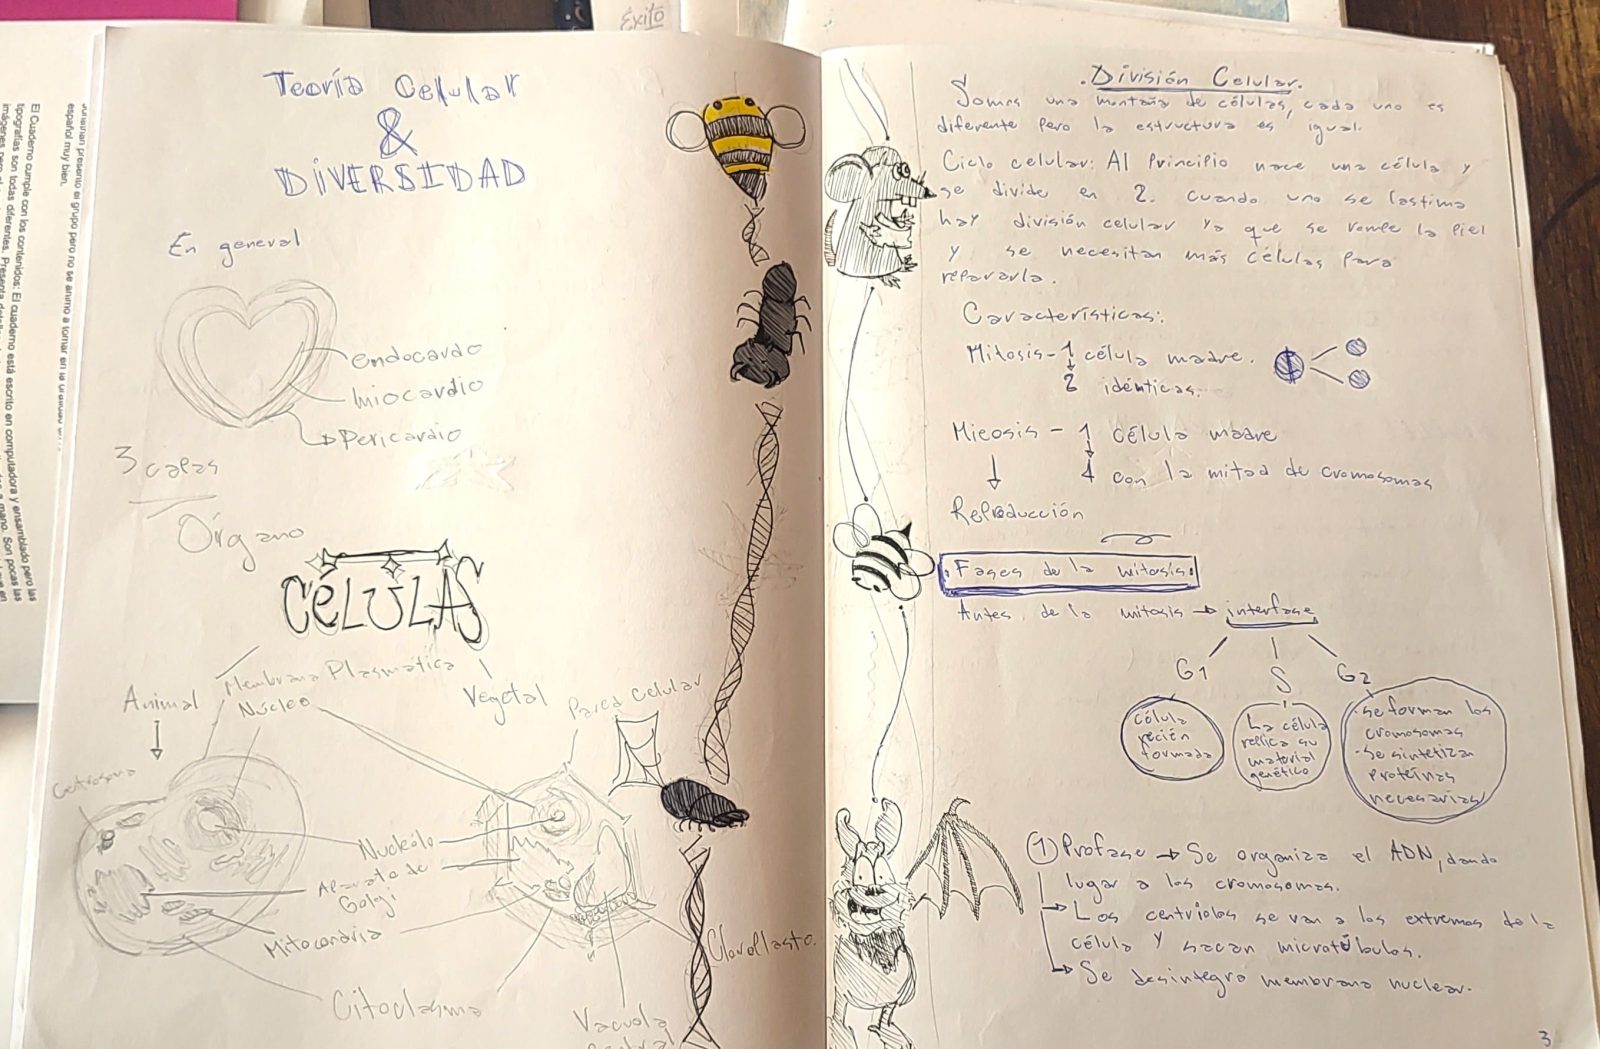 Éxito
español muy bien.
El Cuaderno cumple con los contenidos: El cuaderno está escrito en computadora y ensamblado pero las
tipografías son todas diferentes.
Son pocas las
Teoría Celular
&
DiVERSIDAD
En general
endocardo
miocardio
Pericardio
3 capas
Órgano
CéLULAS
Membrana Plasmática
Animal
Núcleo
Vegetal
Pared Celular
Centrosoma
Nucleólo
Aparato de
Golgi
Mitocondria
Cloroplasto.
Citoplasma
Vacuola
.División Celular.
Somos una montaña de células, cada uno es
diferente pero la estructura es igual.
Ciclo celular: Al Principio nace una célula y
se divide en 2. Cuando uno se lastima
hay división celular ya que se rompe la piel
y se necesitan más células para
repararla.
Características:
Mitosis - 1 célula madre.
2 idénticas.
Mieosis - 1 célula madre
4 con la mitad de cromosomas
Reproducción
. Fases de la mitosis.
Antes de la mitosis → interfase
G1 S G2
célula
recién
formada
La célula
replica su
material
genético
· se forman los
cromosomas
· Se sintetizan
Proteínas
necesarias
1 Profase → Se organiza el ADN, dando
lugar a los cromosomas.
→ Los centriolos se van a los extremos de la
célula y sacan microtúbulos.
→ Se desintegra membrana nuclear.
3